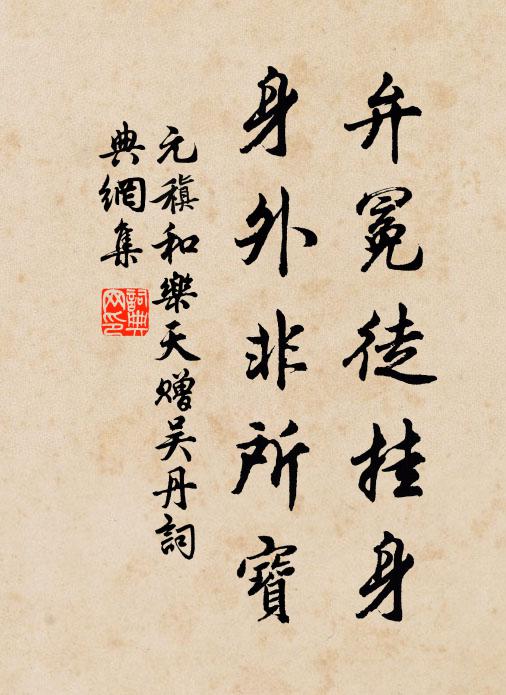 弁冕徒挂身
身外非所寶
元稹和樂天贈吳丹詞
典網集
詞典
网印